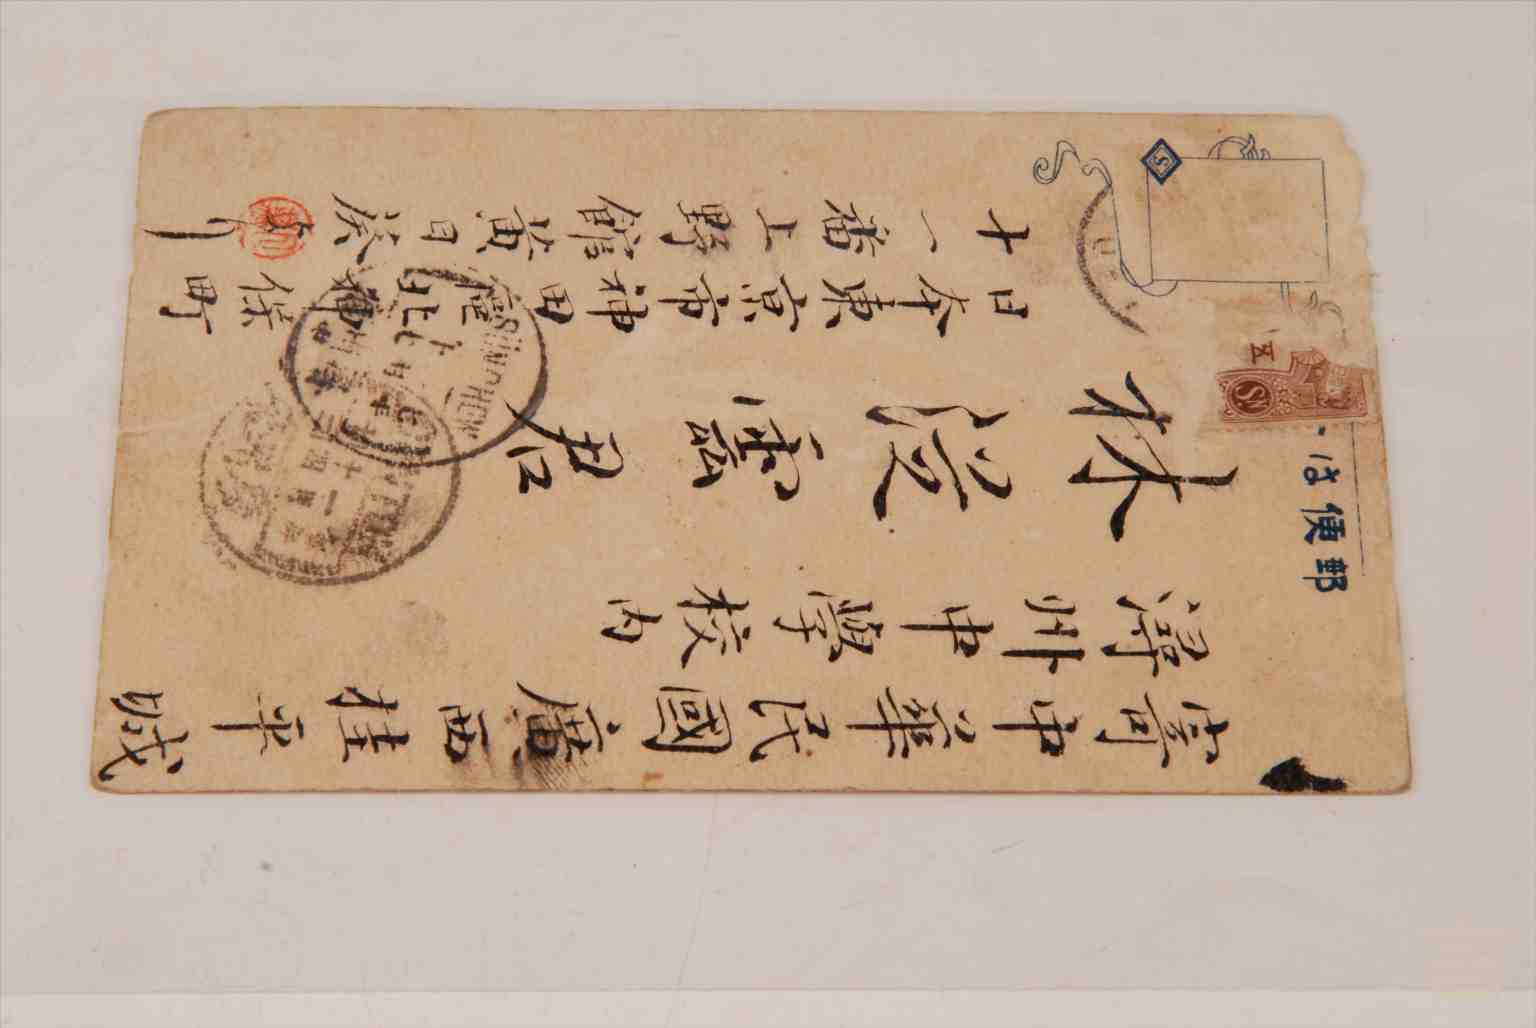 郵便は
寄中華民國廣西桂平城
潯州中學校內
林 君
日本東京市神田區北神保町
十一番上野館黃日葵
SÜNCHOW
五